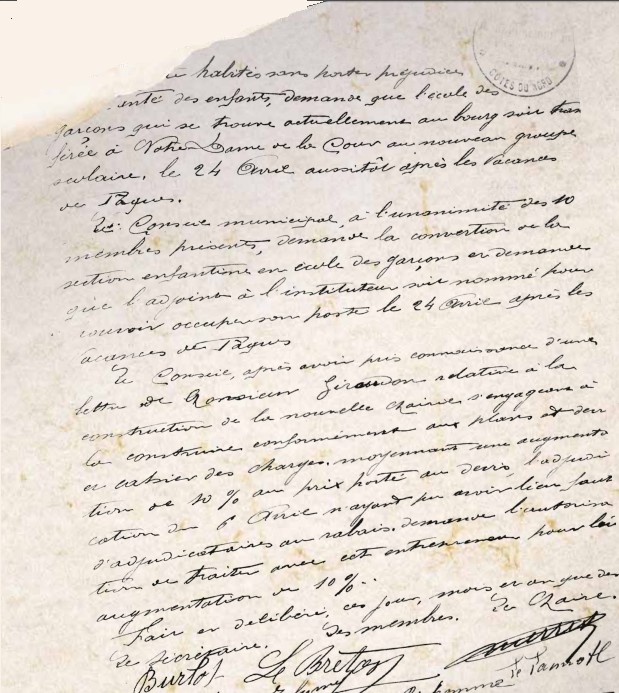 habités sans porter préjudice
des enfants, demande que l'école des
garçons qui se trouve actuellement au bourg soit trans
férée à Notre Dame de la Cour au nouveau groupe
scolaire, le 24 Avril aussitôt après les vacances
de Pâques.
Le Conseil municipal, à l'unanimité des 10
membres présents, demande la convertion de la
section enfantine en école des garçons et demande
que l'adjoint à l'instituteur soit nommé pour
pouvoir occuper son poste le 24 Avril après les
vacances de Pâques
Le Conseil, après avoir pris connaissance d'une
lettre de Monsieur relative à la
construction de la nouvelle Mairie s'engageant à
la construire conformément aux plans et devis
et cahier des charges, moyennant une augmenta
tion de 10 % au prix porté au devis, l'adjudi
cation du 6 Avril n'ayant pu avoir lieu faute
d'adjudicataires au rabais, demande l'autorisa
tion de traiter avec cet entrepreneur pour la
augmentation de 10 %.
Fait en délibéré, ces jour, mois et an que dessus
Le Secrétaire, Les membres. Le Maire.
Burlot Le Breton
COTES DU NORD